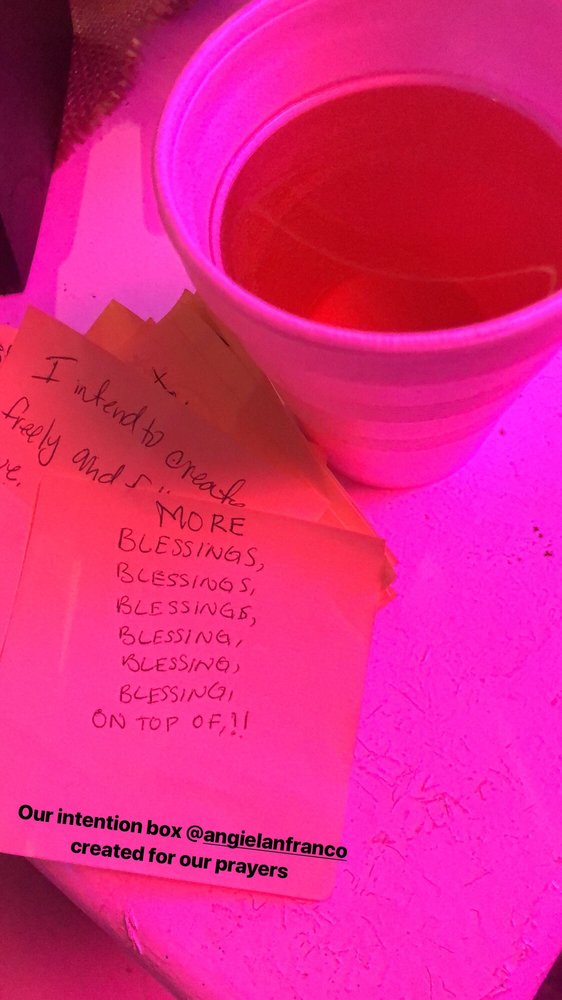 I intend to create
freely and
MORE
BLESSINGS,
BLESSINGS,
BLESSINGS,
BLESSING,
BLESSING,
BLESSING,
ON TOP OF,!!
Our intention box @angielanfranco
created for our prayers